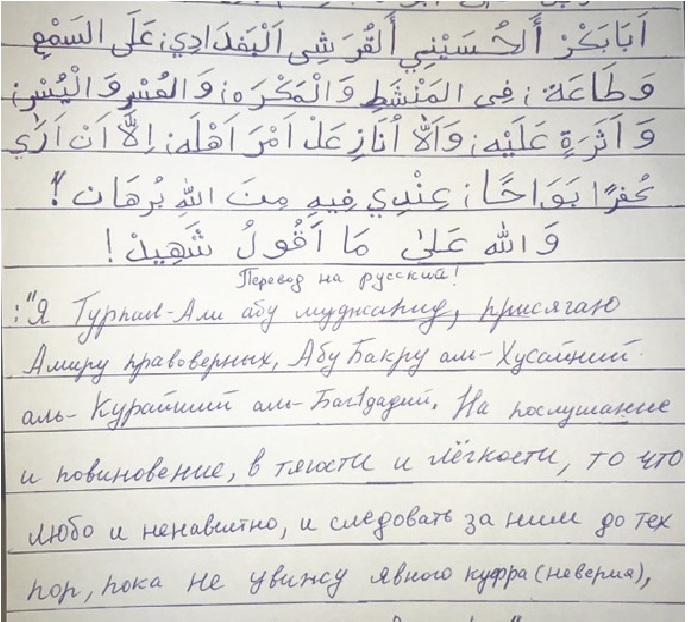 اَبَابَكْرْ اَلْحُسَيْنِي اَلْقُرَشِى اَلْبَغْدَادِي؛ عَلَى السَمْعِ
وَ طَاعَة؛ فِى المَنْشَطِ وَالْمَكْرَه؛ وَالعُسْرِ وَالْيُسْرِ؛
وَ اَثَرَةٍ عَلَيْه؛ وَاَلَّا اُنَازِعَلْ اَمْرَ اَهْلَه؛ اِلَّا اَنْ اَرٰي
كُفرًا بَوَاحًا؛ عِنْدِي فِيهِ مِنَ اللهِ بُرْهَان"!
وَ الله عَلىٰ مَا اَقُولُ شَهِيدْ!
Перевод на русский!
:"Я Турпал-Али абу муджахид, присягаю
Амиру правоверных, Абу Бакру аль-Хусайний
аль-Курайший аль-Багдадий. На послушание
и повиновение, в тягости и лёгкости, то что
любо и ненавистно, и следовать за ним до тех
пор, пока не увижу явного куфра (неверия),